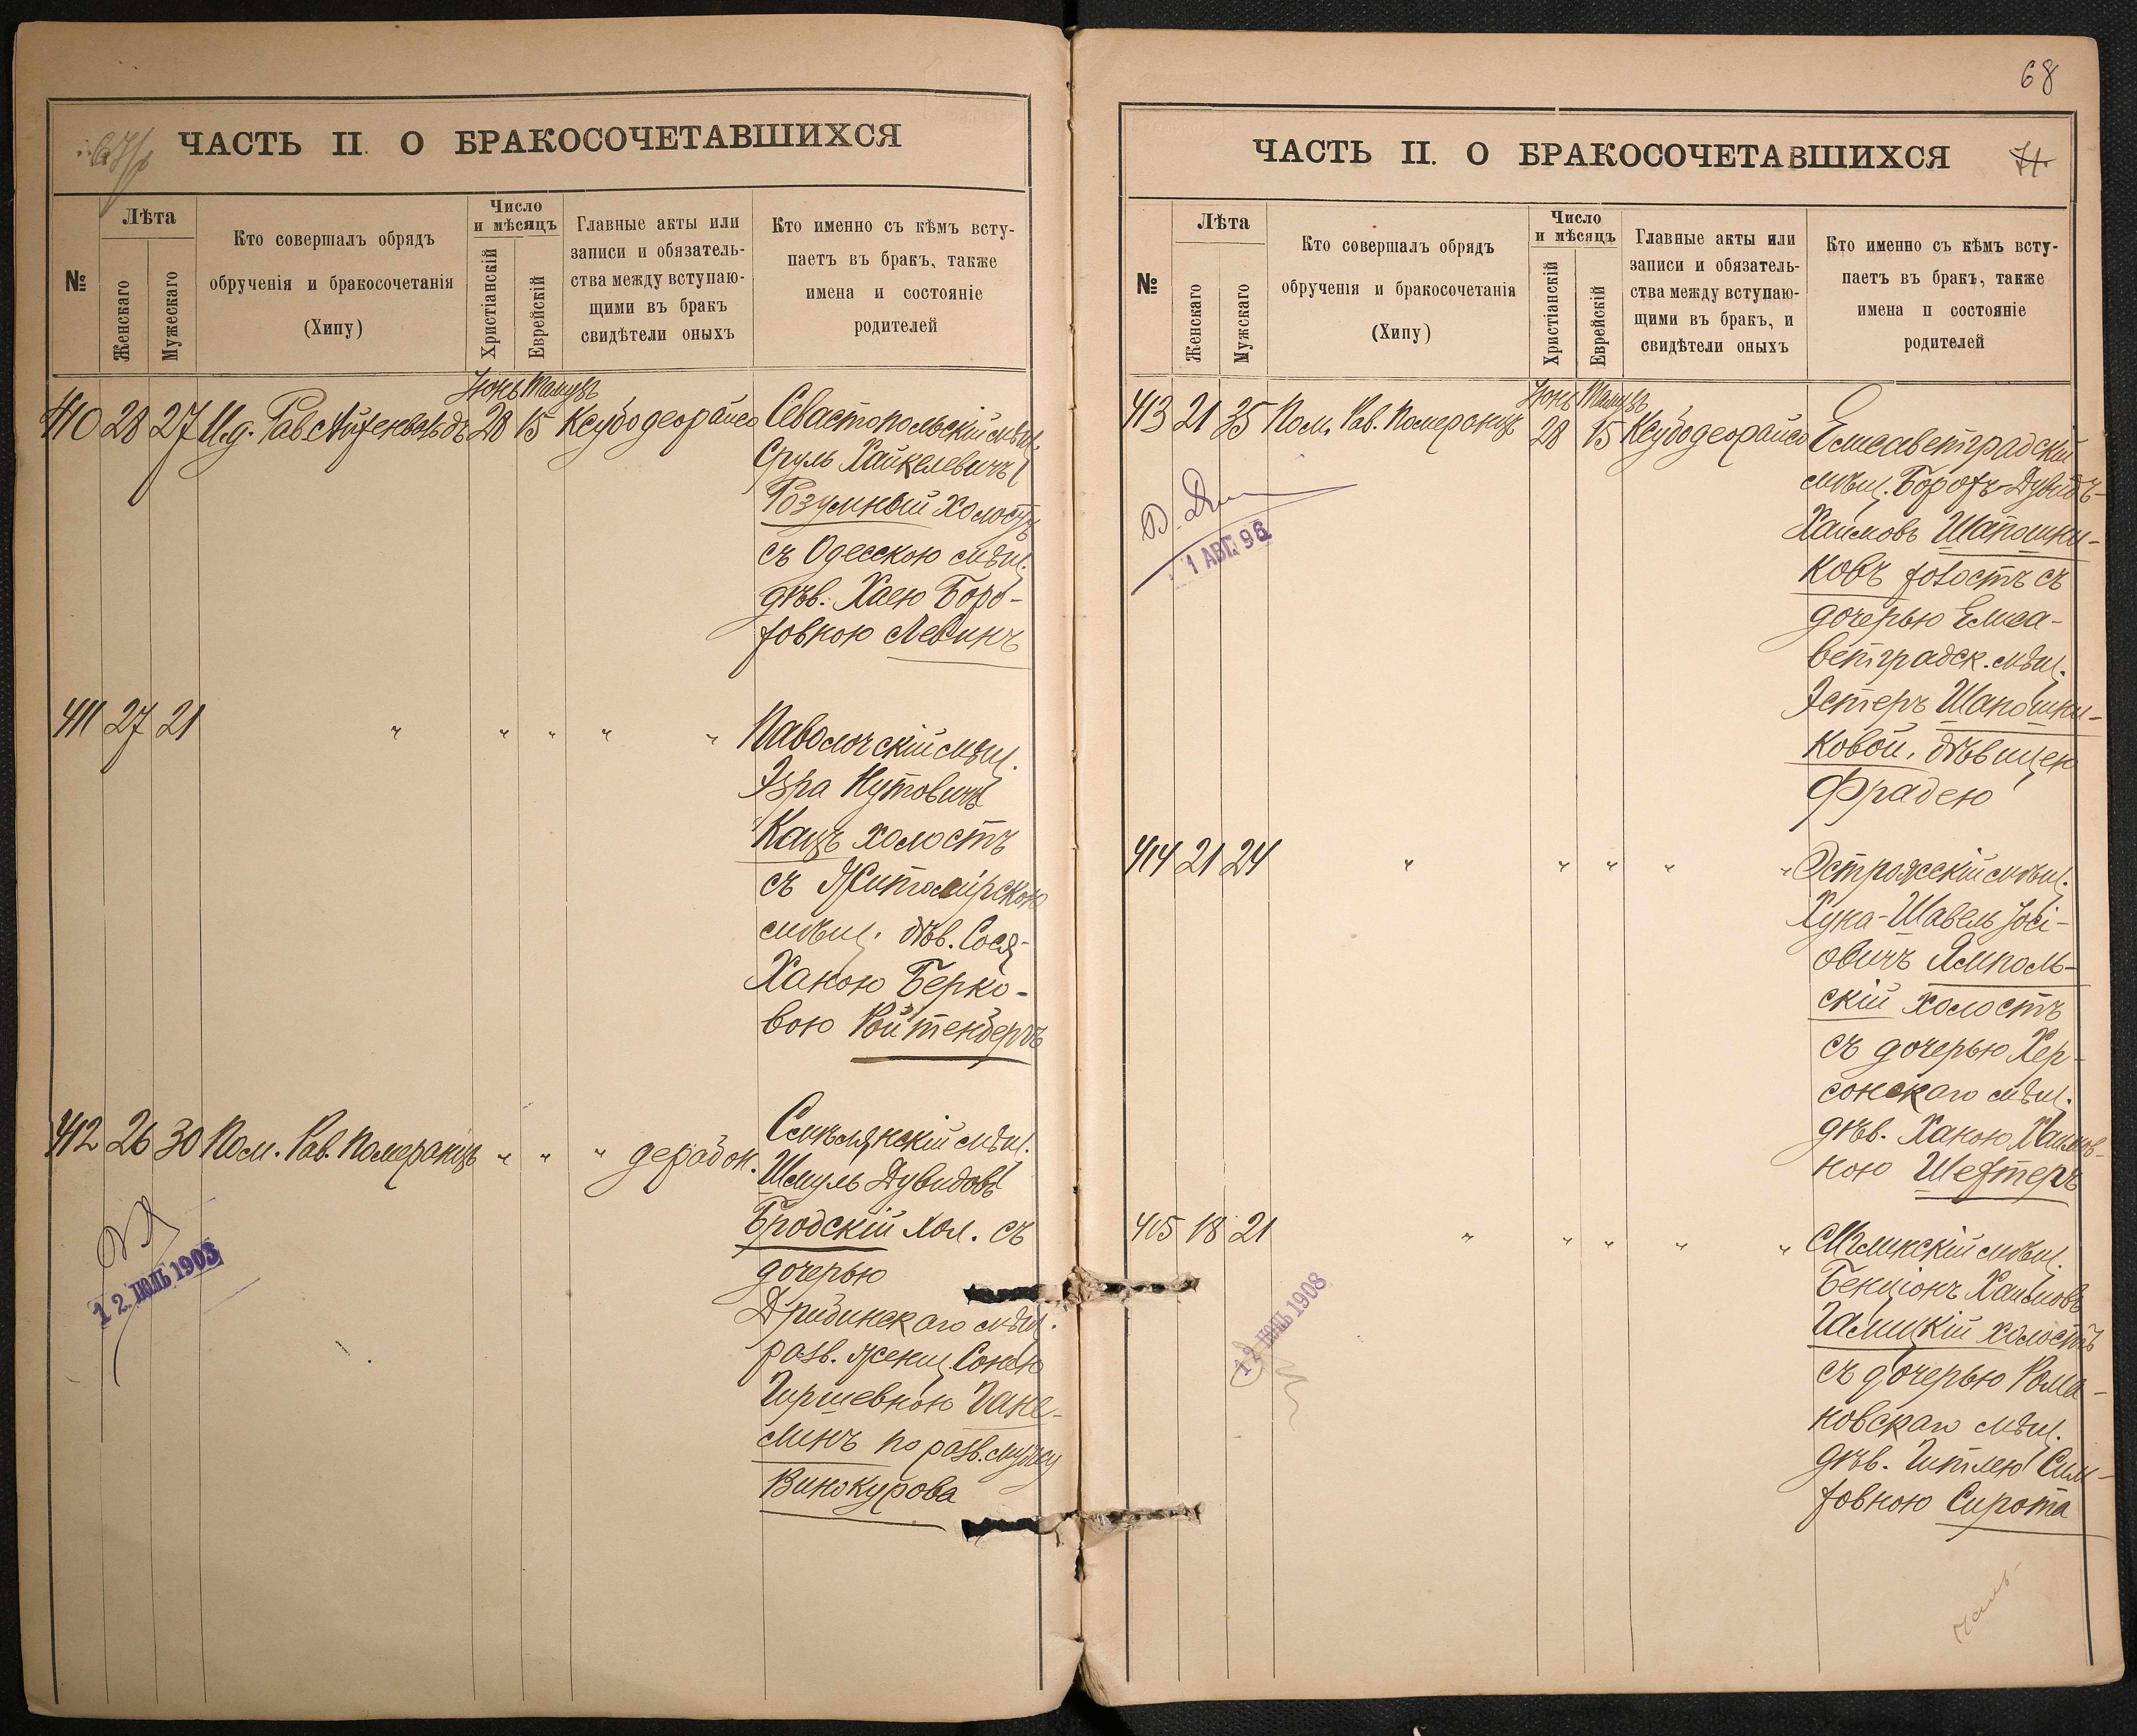 ЧАСТЬ II. О БРАКОСОЧЕТАВШИХСЯ
№
Лѣта
Женскаго
Мужескаго
Кто совершалъ обрядъ
обрученія и бракосочетанія
(Хипу)
Число
и мѣсяцъ
Христіанскій
Еврейскій
Главные акты или
записи и обязатель-
ства между вступаю-
щими въ бракъ
свидѣтели оныхъ
Кто именно съ кѣмъ всту-
паетъ въ бракъ, также
имена и состояніе
родителей
Іюнь Тамузъ
410 28 27 И.д. Рав. Айзенвальдъ 28 15 Ксубодеорайсо Севастопольскій мѣщ.
Сруль Хайкелевичъ
Розумный холостъ
съ Одесскою мѣщ.
дѣв. Хаею Боро-
ховною Левинъ
411 27 21 " " " " " Паволочскій мѣщ.
Эзра Нутовичъ
Кацъ холостъ
съ Житомірскою
мѣщ. дѣв. Сося-
Ханою Берко-
вою Ройтенбергъ
412 26 30 Пом. Рав. Померанцъ " " " дерабон. Смѣлянскій мѣщ.
Шмуль Дувидовъ
Бродскій хол. съ
дочерью
мѣщ.
разв. женщ. Сонею
Гиршевною Гане-
линъ по разв. мужу
Винокурова
12 ІЮЛЬ 1903
68
ЧАСТЬ II. О БРАКОСОЧЕТАВШИХСЯ
71
№
Лѣта
Женскаго
Мужскаго
Кто совершалъ обрядъ
обрученія и бракосочетанія
(Хипу)
Число
и мѣсяцъ
Христіанскій
Еврейскій
Главные акты или
записи и обязатель-
ства между вступаю-
щими въ бракъ, и
свидѣтели оныхъ
Кто именно съ кѣмъ всту-
паетъ въ бракъ, также
имена и состояніе
родителей
Іюнь Тамузъ
413 21 35 Пом. Рав. Померанцъ 28 15 Ксубодеорайсо Елисаветградскій
мѣщ. Борохъ-Дувидъ-
Хаимовъ Шапошни-
ковъ холостъ съ
дочерью Елиса-
ветградск. мѣщ.
Эстеръ Шапошни-
ковой, дѣвицею
Фрадею
1 АВГ. 98
414 21 24 " " " " " Острожскій мѣщ.
Хуна-Шавель Іосі-
овичъ Ямполь-
скій холостъ
съ дочерью Хер-
сонскаго мѣщ.
дѣв. Ханою Хаимов-
ною Шехтеръ
415 18 21 " " " " " мѣщ.
Бенціонъ Хаимовъ
Галицкій холостъ
съ дочерью Рома-
новскаго мѣщ.
дѣв. Гитлею Сим-
ховною Сирота
12 ІЮЛЬ 1908